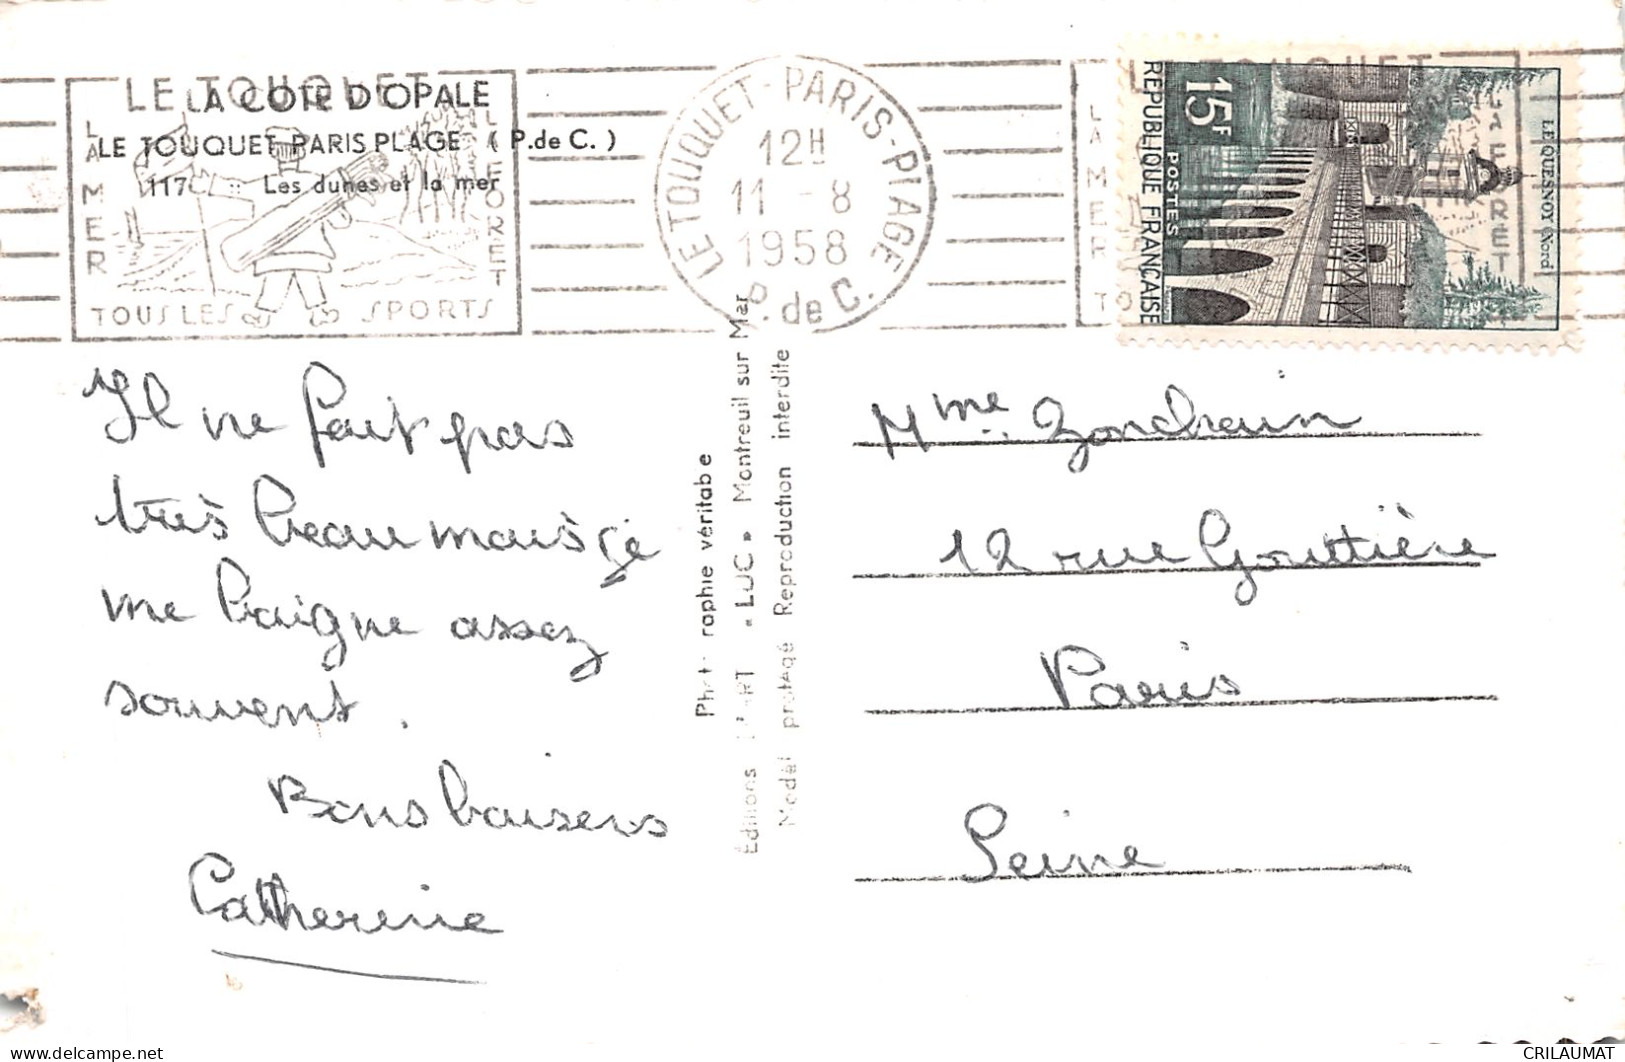 LE TOUQUET
LA COTE D'OPALE
LE TOUQUET PARIS PLAGE ( P.de C. )
117 Les dunes et la mer
LA MER
LA FORET
TOUS LES SPORTS
LE TOUQUET-PARIS-PLAGE
12H
11 -8
1958
P. de C.
LE TOUQUET
LA MER
LA FORET
15F
POSTES
REPUBLIQUE FRANÇAISE
LE QUESNOY (Nord)
Il ne fait pas
très beau mais je
me baigne assez
souvent.
Bons baisers
Catherine
Éditions D'ART « LUC » Montreuil sur Mer
Modèl protégé Reproduction interdite
Mme Gondrain
12 rue Gouttière
Paris
Seine
CRILAUMAT